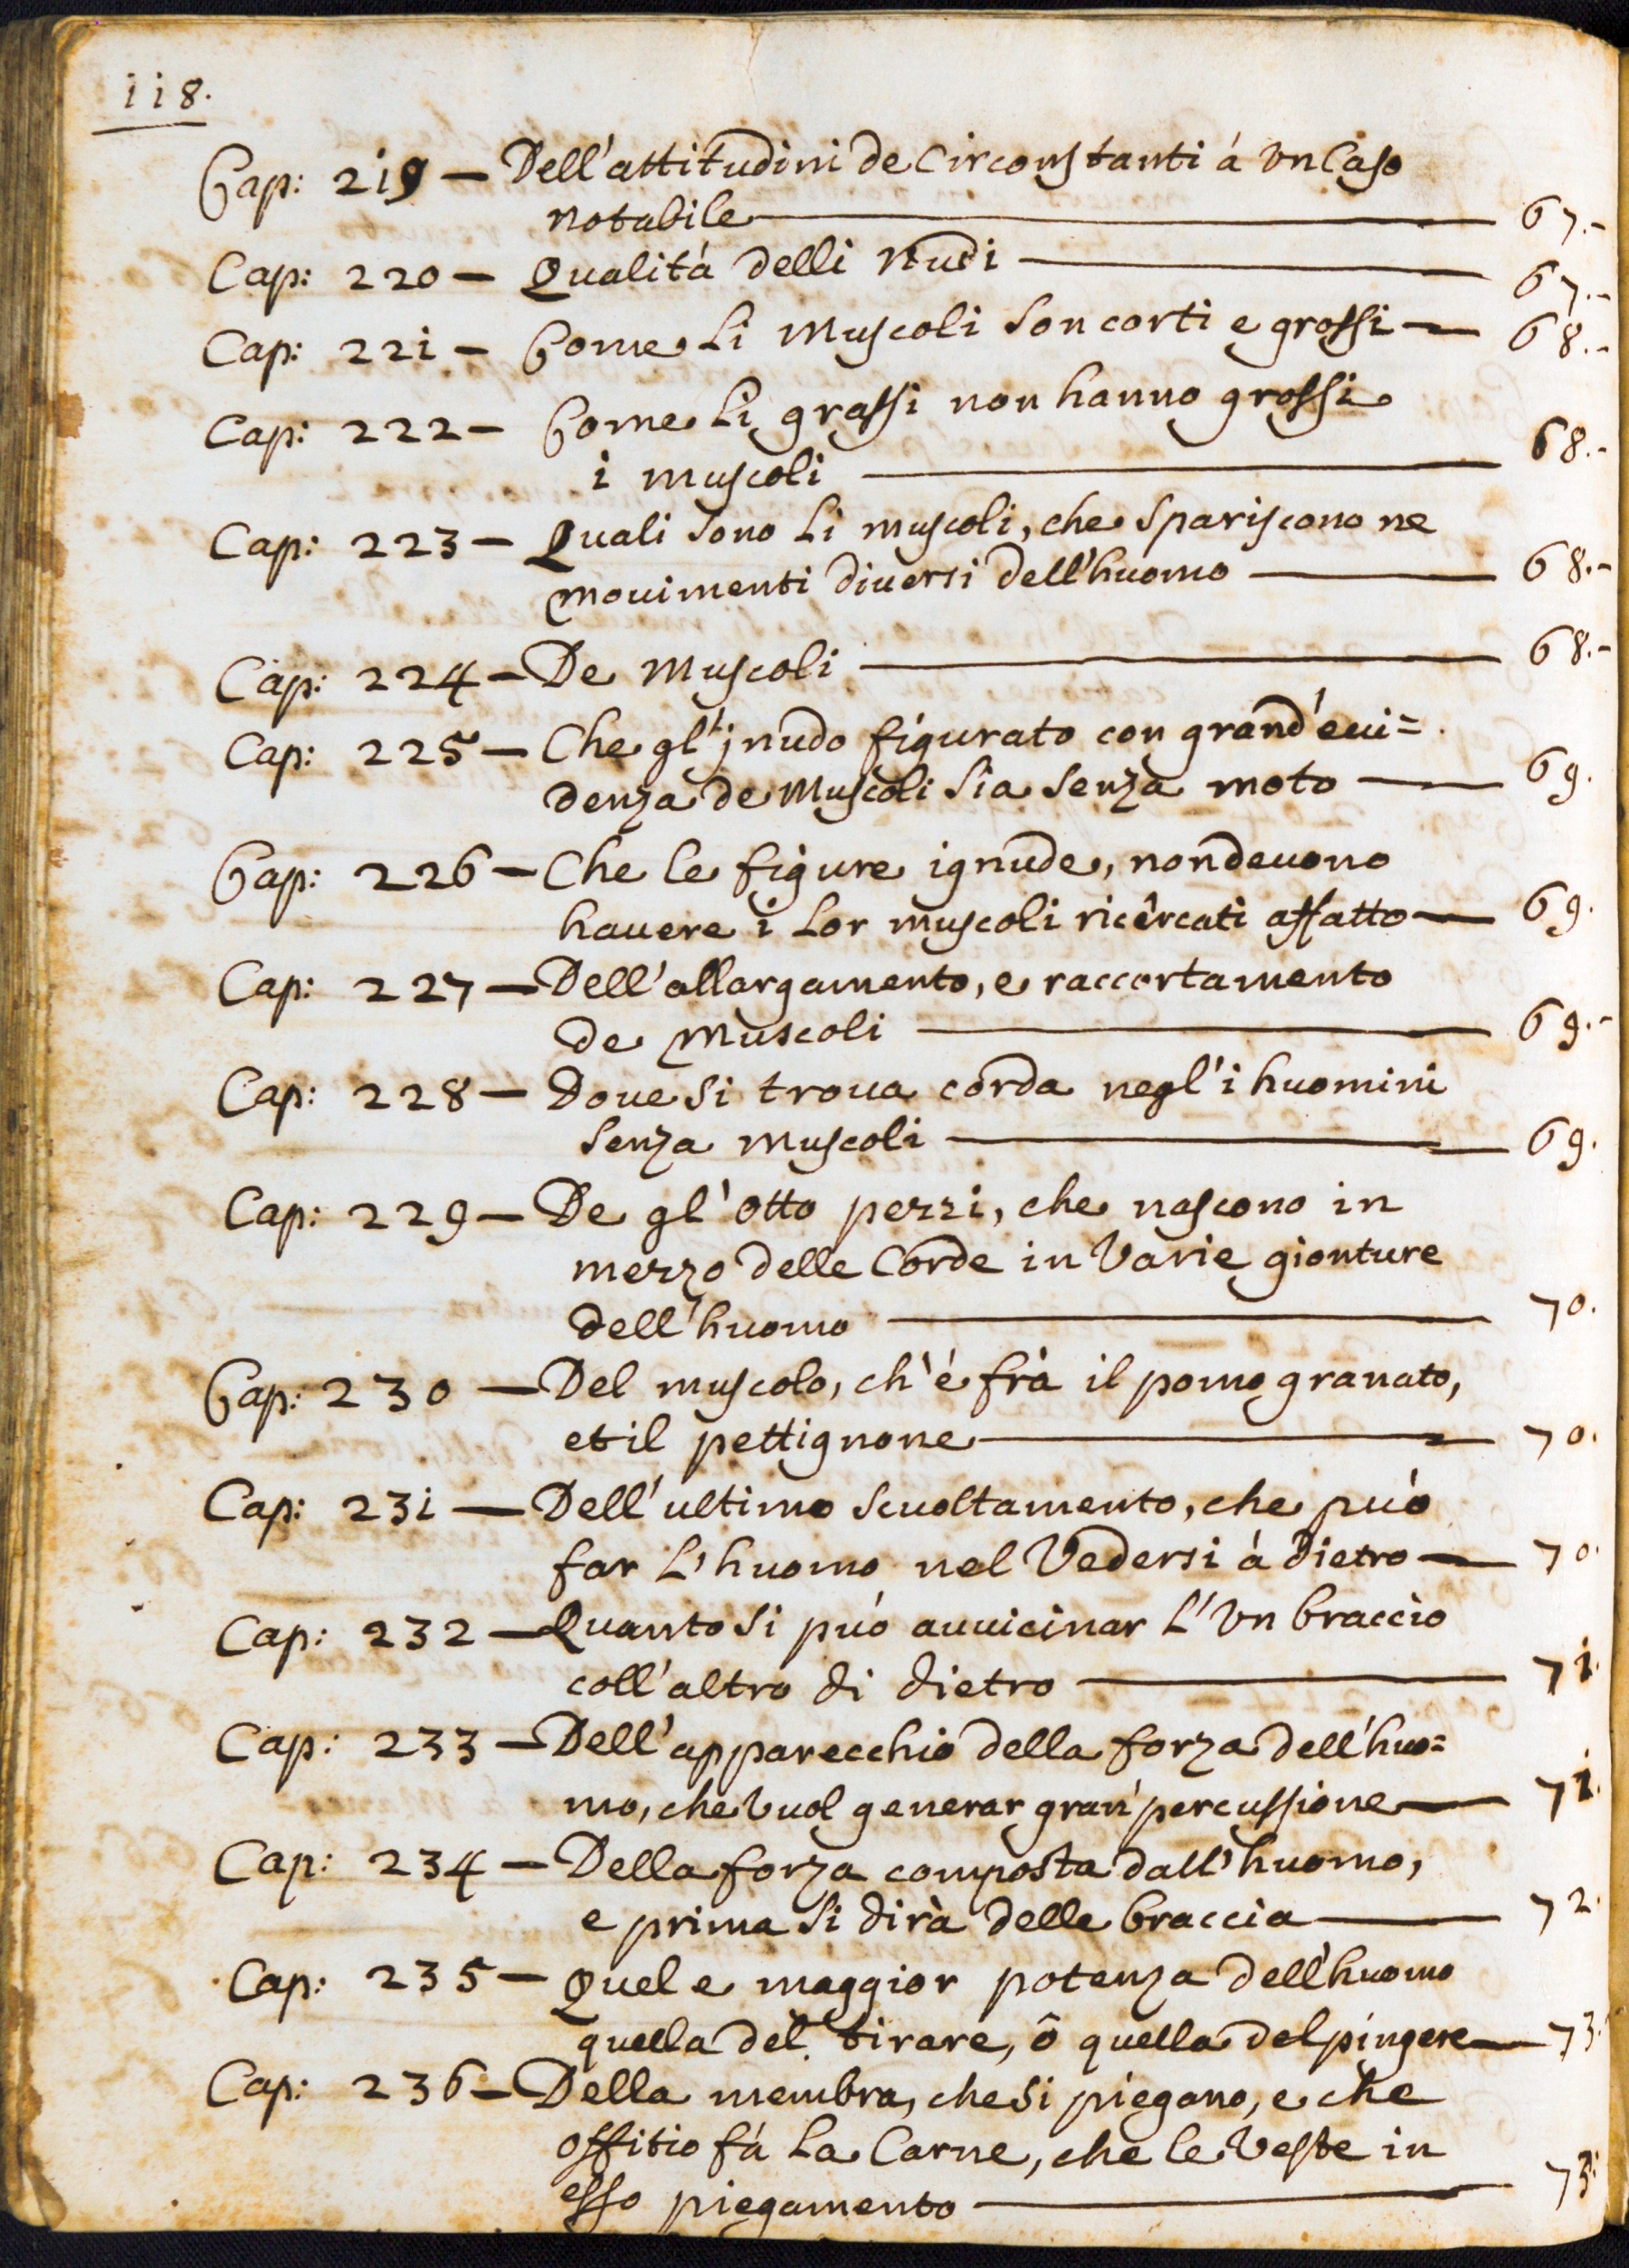 118.
Cap: 219 — Dell'attitudini de Circonstanti á Vn Caso
notabile — 67.-
Cap: 220 — Qualitá delli nudi — 67.-
Cap: 221 — Come Li Muscoli Son corti e grossi — 68.-
Cap: 222 — Come Li grassi non hanno grossi
i muscoli — 68.-
Cap: 223 — Quali sono Li muscoli, che Spariscono ne
movimenti diversi dell'huomo — 68.-
Cap: 224 — De Muscoli — 68.-
Cap: 225 — Che gl'jnudo figurato con grand'eui=
denza de Muscoli Sia Senza moto — 69.
Cap: 226 — Che le figure ignude, non deuono
hauere i Lor muscoli ricercati affatto — 69.
Cap: 227 — Dell'allargamento, e raccortamento
de Muscoli — 69.-
Cap: 228 — Doue Si troua corda negl'i huomini
Senza muscoli — 69.
Cap: 229 — De gl'otto pezzi, che nascono in
mezzo delle Corde in Varie gionture
dell'huomo — 70.
Cap: 230 — Del muscolo, ch'é frà il pomo granato,
et il pettignone — 70.
Cap: 231 — Dell'ultimo Suoltamento, che puó
far L'huomo nel Vedersi á dietro — 70.
Cap: 232 — Quanto Si puó auuicinar L'Vn braccio
coll'altro di dietro — 71.
Cap: 233 — Dell'apparecchio della forza dell'huo=
mo, che Vuol generar gran percussione — 71.
Cap: 234 — Della forza composta dall'huomo,
e prima Si dirà delle braccia — 72.
Cap: 235 — Quel e maggior potenza dell'huomo
quella del tirare, ô quella del pingere — 73.
Cap: 236 — Della membra, che Si piegano, e che
offitio fá La Carne, che le Veste in
esso piegamento — 73.